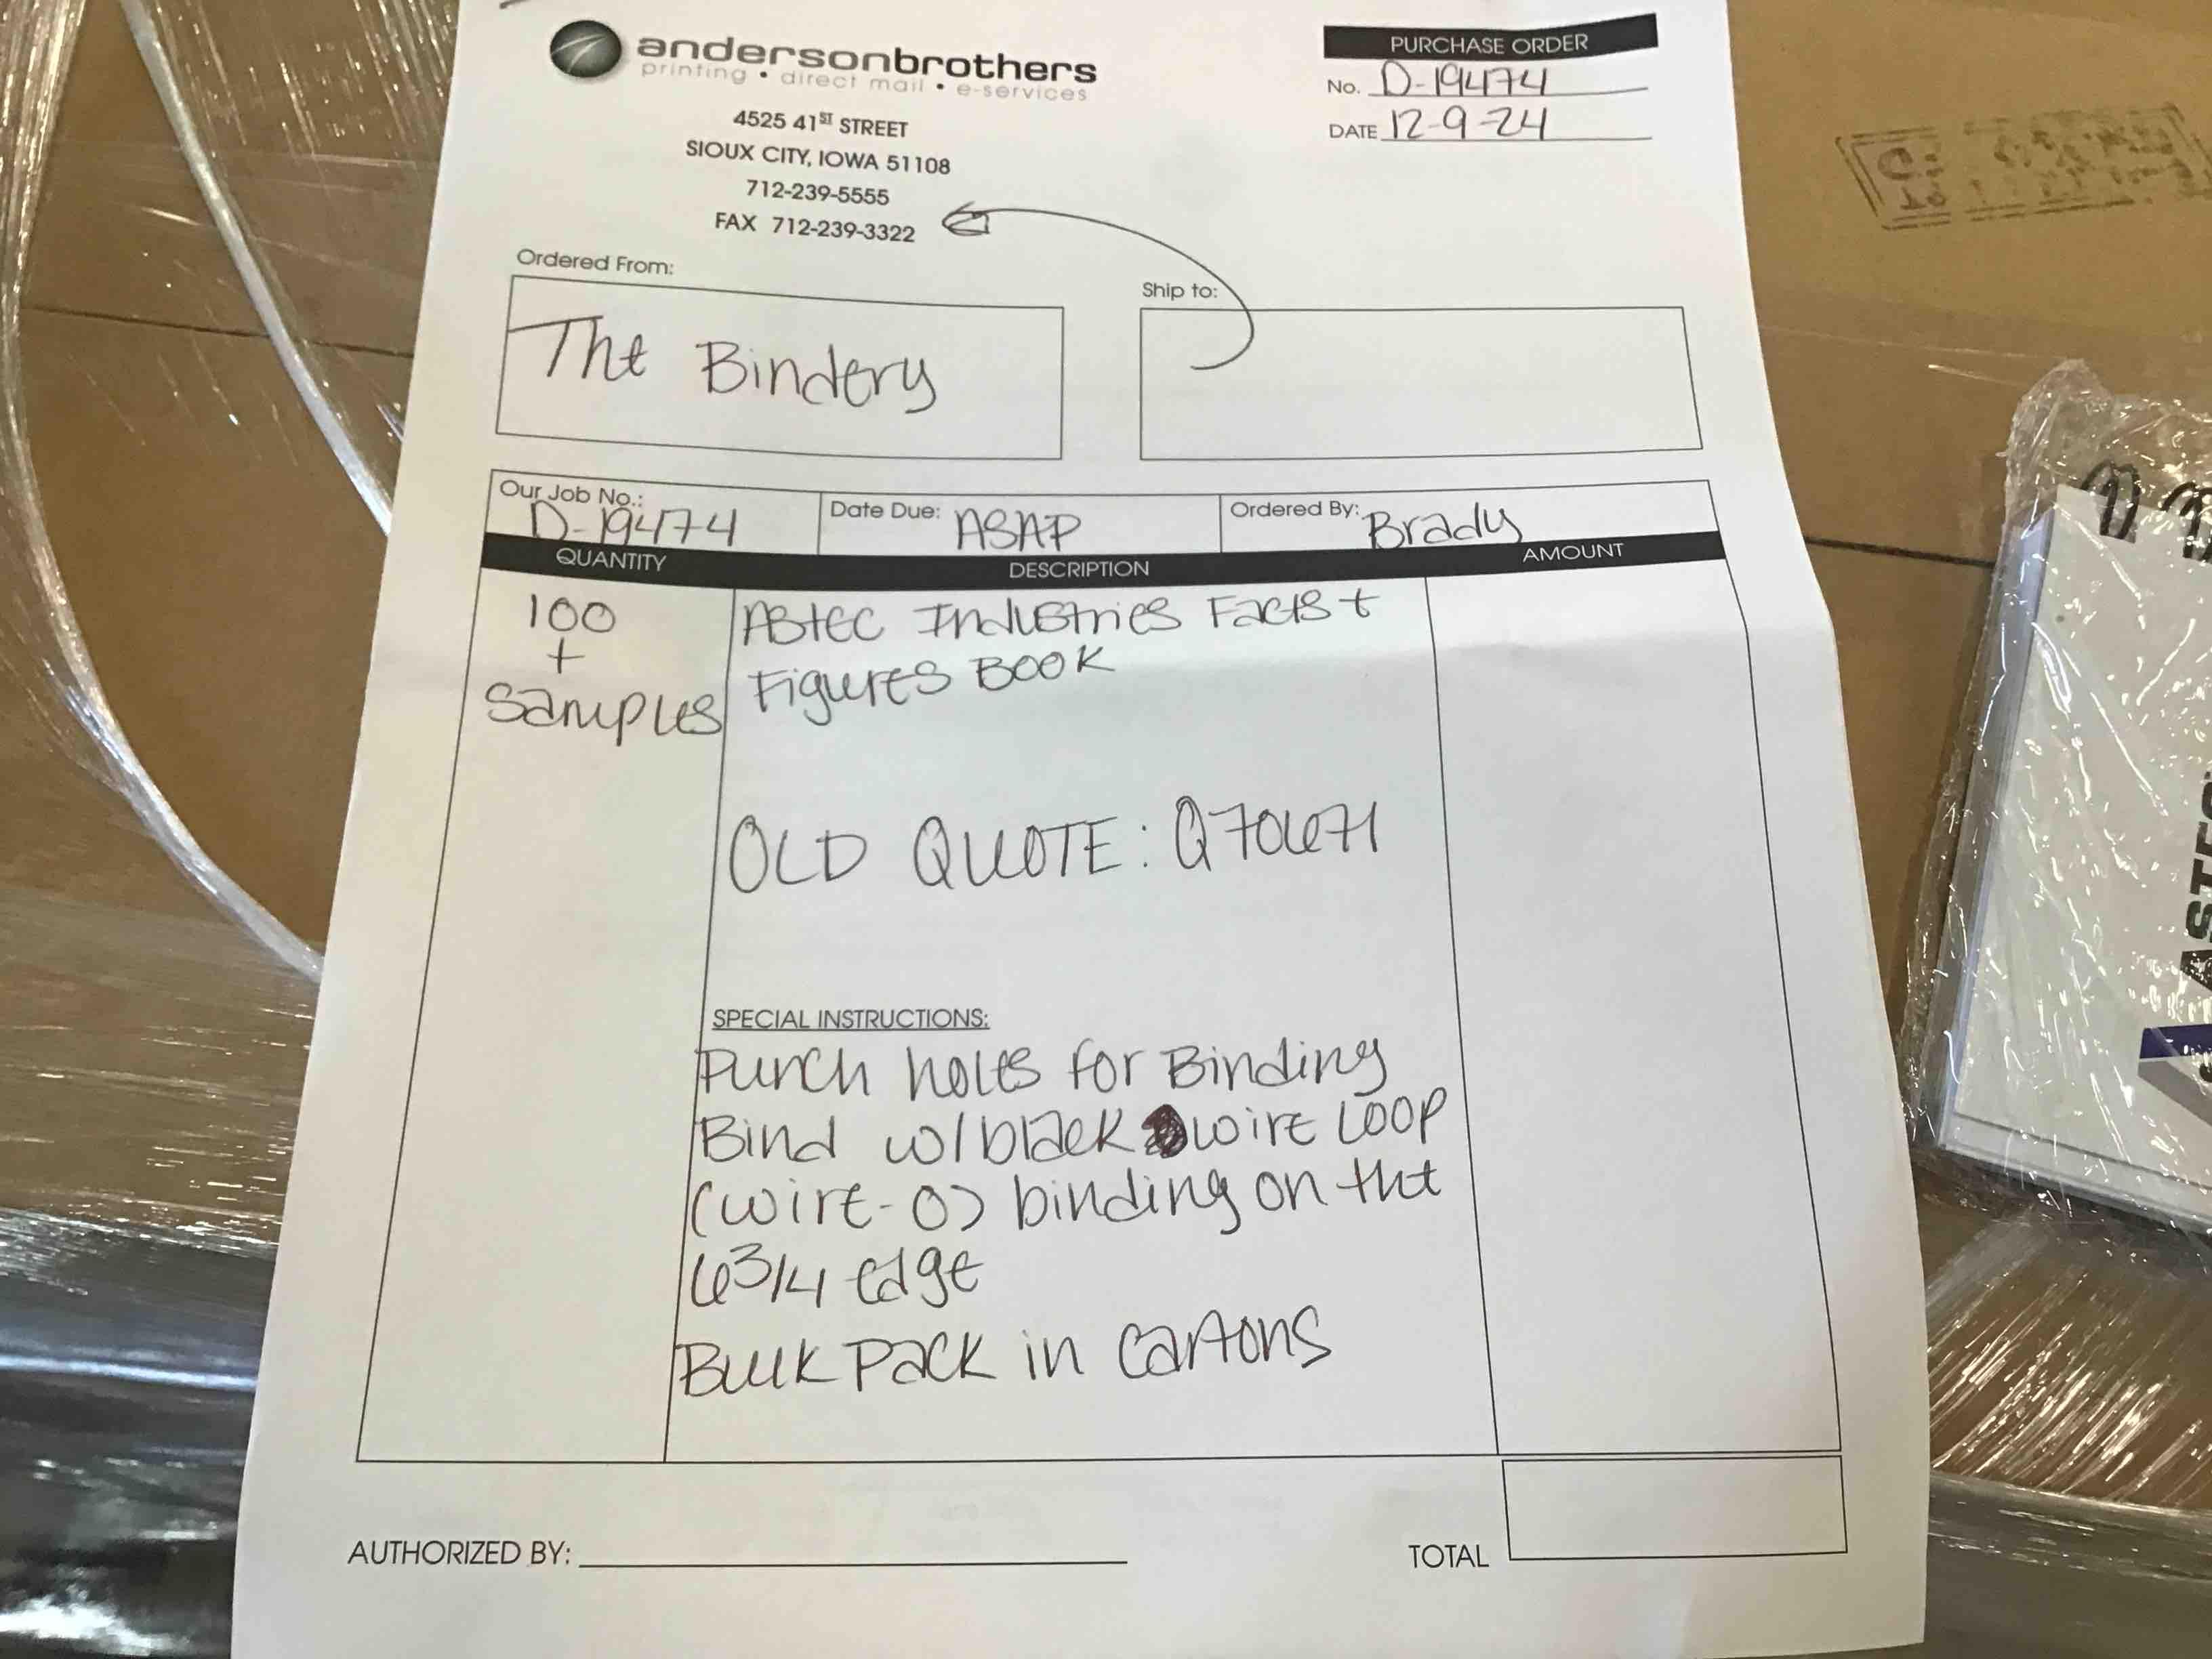 andersonbrothers
printing • direct mail • e-services
4525 41ST STREET
SIOUX CITY, IOWA 51108
712-239-5555
FAX 712-239-3322
PURCHASE ORDER
No. D-19474
DATE 12-9-24
Ordered From:
The Bindery
Ship to:
Our Job No.: D-19474
Date Due: ASAP
Ordered By: Brady
QUANTITY DESCRIPTION AMOUNT
100
+
Samples
Astec Industries Facts +
Figures Book
OLD QUOTE: Q70671
SPECIAL INSTRUCTIONS:
Punch holes for Binding
Bind w/black wire Loop
(wire-O) binding on the
6 3/4 edge
Bulk Pack in Cartons
AUTHORIZED BY:
TOTAL
ASTEC